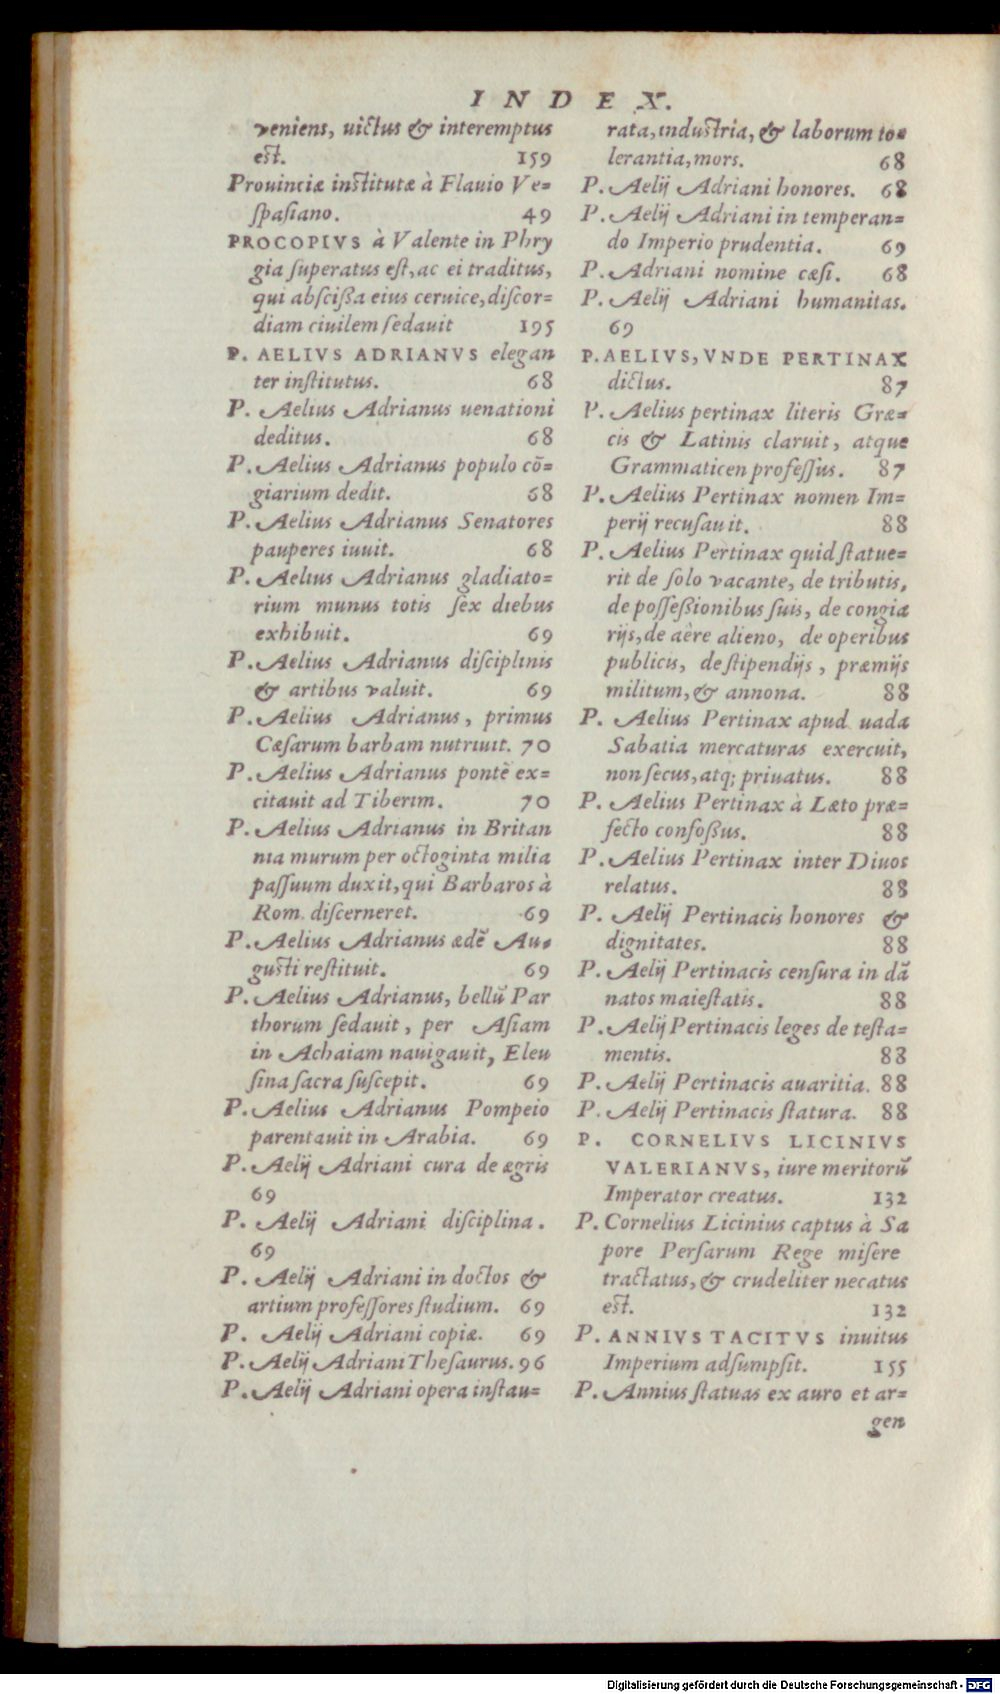 INDEX.
veniens, uictus & interemptus
est. 159
Prouinciæ institutæ à Flauio Ve=
ſpaſiano. 49
PROCOPIVS à Valente in Phry
gia ſuperatus eſt, ac ei traditus,
qui abſcißa eius ceruice, diſcor-
diam ciuilem ſedauit 195
P. AELIVS ADRIANVS elegan
ter inſtitutus. 68
P. Aelius Adrianus uenationi
deditus. 68
P. Aelius Adrianus populo cō=
giarium dedit. 68
P. Aelius Adrianus Senatores
pauperes iuuit. 68
P. Aelius Adrianus gladiato=
rium munus totis ſex diebus
exhibuit. 69
P. Aelius Adrianus diſciplinis
& artibus valuit. 69
P. Aelius Adrianus, primus
Cæſarum barbam nutriuit. 70
P. Aelius Adrianus pontē ex=
citauit ad Tiberim. 70
P. Aelius Adrianus in Britan
nia murum per octoginta milia
paſſuum duxit, qui Barbaros à
Rom. diſcerneret. 69
P. Aelius Adrianus ædē Au=
gusti reſtituit. 69
P. Aelius Adrianus, bellū Par
thorum ſedauit, per Aſiam
in Achaiam nauigauit, Eleu
ſina ſacra ſuſcepit. 69
P. Aelius Adrianus Pompeio
parentauit in Arabia. 69
P. Aelij Adriani cura de ægris
69
P. Aelij Adriani diſciplina.
69
P. Aelij Adriani in doctos &
artium profeſſores ſtudium. 69
P. Aelij Adriani copiæ. 69
P. Aelij Adriani Theſaurus. 96
P. Aelij Adriani opera inſtau=
rata, industria, & laborum to=
lerantia, mors. 68
P. Aelij Adriani honores. 68
P. Aelij Adriani in temperan=
do Imperio prudentia. 69
P. Adriani nomine cæſi. 68
P. Aelij Adriani humanitas.
69
P. AELIVS, VNDE PERTINAX
dictus. 87
P. Aelius pertinax literis Græ=
cis & Latinis claruit, atque
Grammaticen profeſſus. 87
P. Aelius Pertinax nomen Im=
perij recuſauit. 88
P. Aelius Pertinax quid ſtatue=
rit de ſolo vacante, de tributis,
de poſſeßionibus ſuis, de congia
rijs, de aëre alieno, de operibus
publicis, de ſtipendijs, præmijs
militum, & annona. 88
P. Aelius Pertinax apud uada
Sabatia mercaturas exercuit,
non ſecus, atq; priuatus. 88
P. Aelius Pertinax à Læto præ=
fecto confoßus. 88
P. Aelius Pertinax inter Diuos
relatus. 88
P. Aelij Pertinacis honores &
dignitates. 88
P. Aelij Pertinacis cenſura in dā
natos maieſtatis. 88
P. Aelij Pertinacis leges de teſta=
mentis. 88
P. Aelij Pertinacis auaritia. 88
P. Aelij Pertinacis ſtatura. 88
P. CORNELIVS LICINIVS
VALERIANVS, iure meritorū
Imperator creatus. 132
P. Cornelius Licinius captus à Sa
pore Perſarum Rege miſere
tractatus, & crudeliter necatus
est. 132
P. ANNIVS TACITVS inuitus
Imperium adſumpſit. 155
P. Annius ſtatuas ex auro et ar=
gen
Digitalisierung gefördert durch die Deutsche Forschungsgemeinschaft - DFG